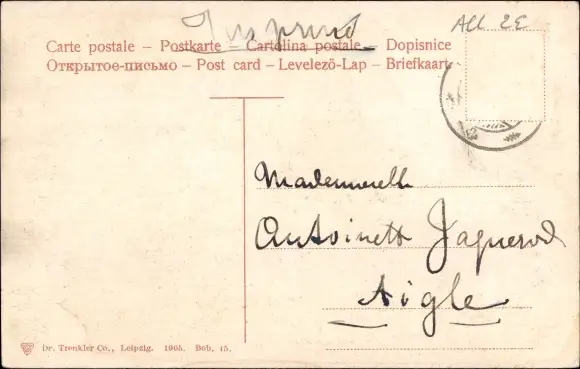 Imprimé
All 2E
Carte postale – Postkarte – Cartolina postale – Dopisnice
Открытое-письмо – Post card – Levelező-Lap – Briefkaart
Mademoiselle
Antoinette Jaquerod
Aigle
Dr. Trenkler Co., Leipzig. 1905. Bob. 15.